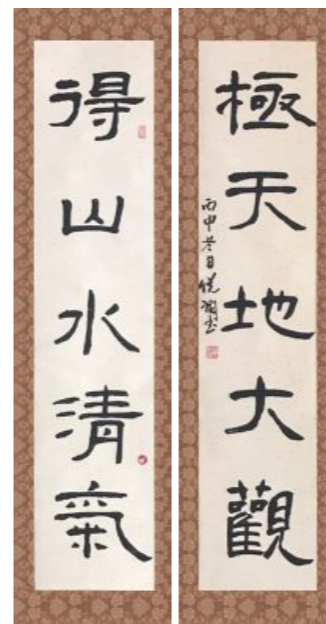 極天地大觀
丙申冬日
得山水清氣